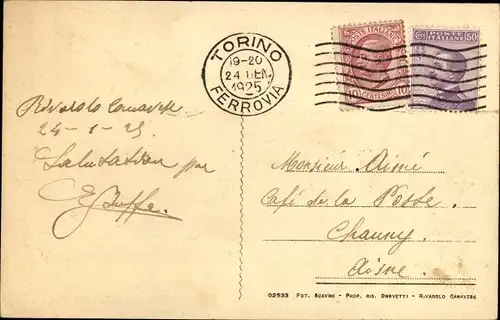 TORINO
19-20
24 GEN
1925
FERROVIA
POSTE ITALIANE
10 CENTESIMI 10
POSTE ITALIANE 50
Rivarolo Canavese
24-1-25
Monsieur Aimé
Café de la Poste.
Chauny.
Aisne.
02593 FOT. SCAVINI - PROP. RIS. DROVETTI - RIVAROLO CANAVESE